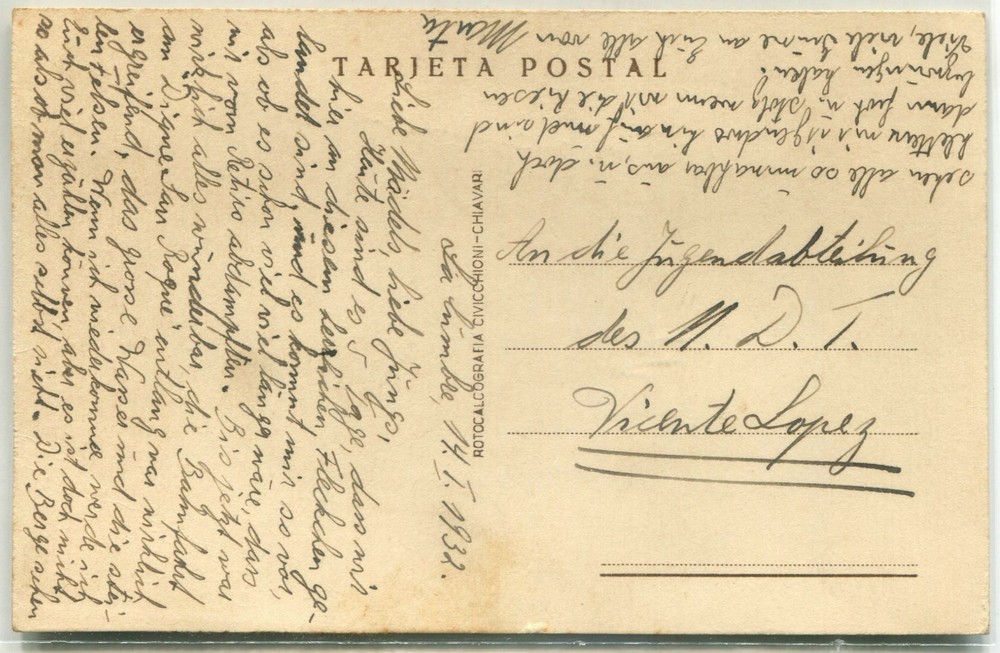 TARJETA POSTAL
ROTOCALCOGRAFIA CIVICCHIONI-CHIAVARI
La Cumbre, 14. I. 1932.
Liebe Mädels, liebe Jungs,
Heute sind es 5 Tge, dass wir
hier in diesem herrlichen Fleckchen ge-
landet sind, und es kommt mir so vor,
als ob es schon viel viel länger wäre, dass
wir vom Retiro abdampften. Bis jetzt war
wirklich alles wunderbar, die Bahnfahrt
am Dique San Roque entlang war wirklich
ergreifend, das grosse Wasser und die stei-
len Felsen. Wenn ich wiederkomme, werde ich
Euch viel erzählen können, aber es ist doch nicht
so als ob man alles selbst sieht. Die Berge sehen
sehen alle so unnahbar aus, u. doch
klettern wir irgendwo hinauf und sind
dann froh u. stolz wenn wir die Riesen
bezwungen haben!
Viele, viele Grüsse an Euch alle von
Marta
An die Jugendabteilung
des N. D. T.
Vicente Lopez